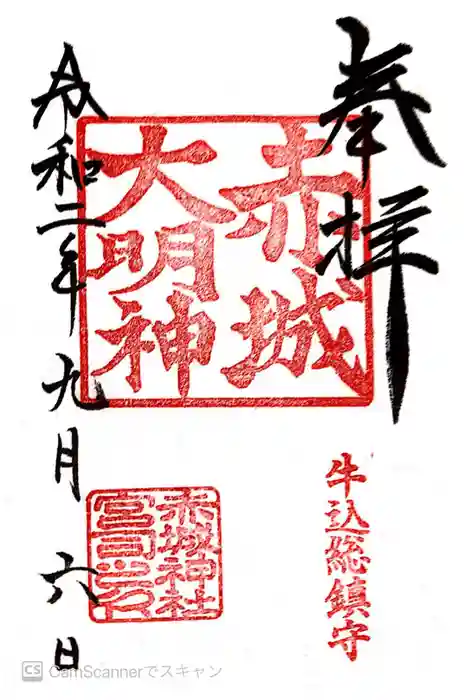 奉拝
赤城
大明神
牛込総鎮守
赤城神社
宮司之印
令和二年九月六日
CS CamScannerでスキャン